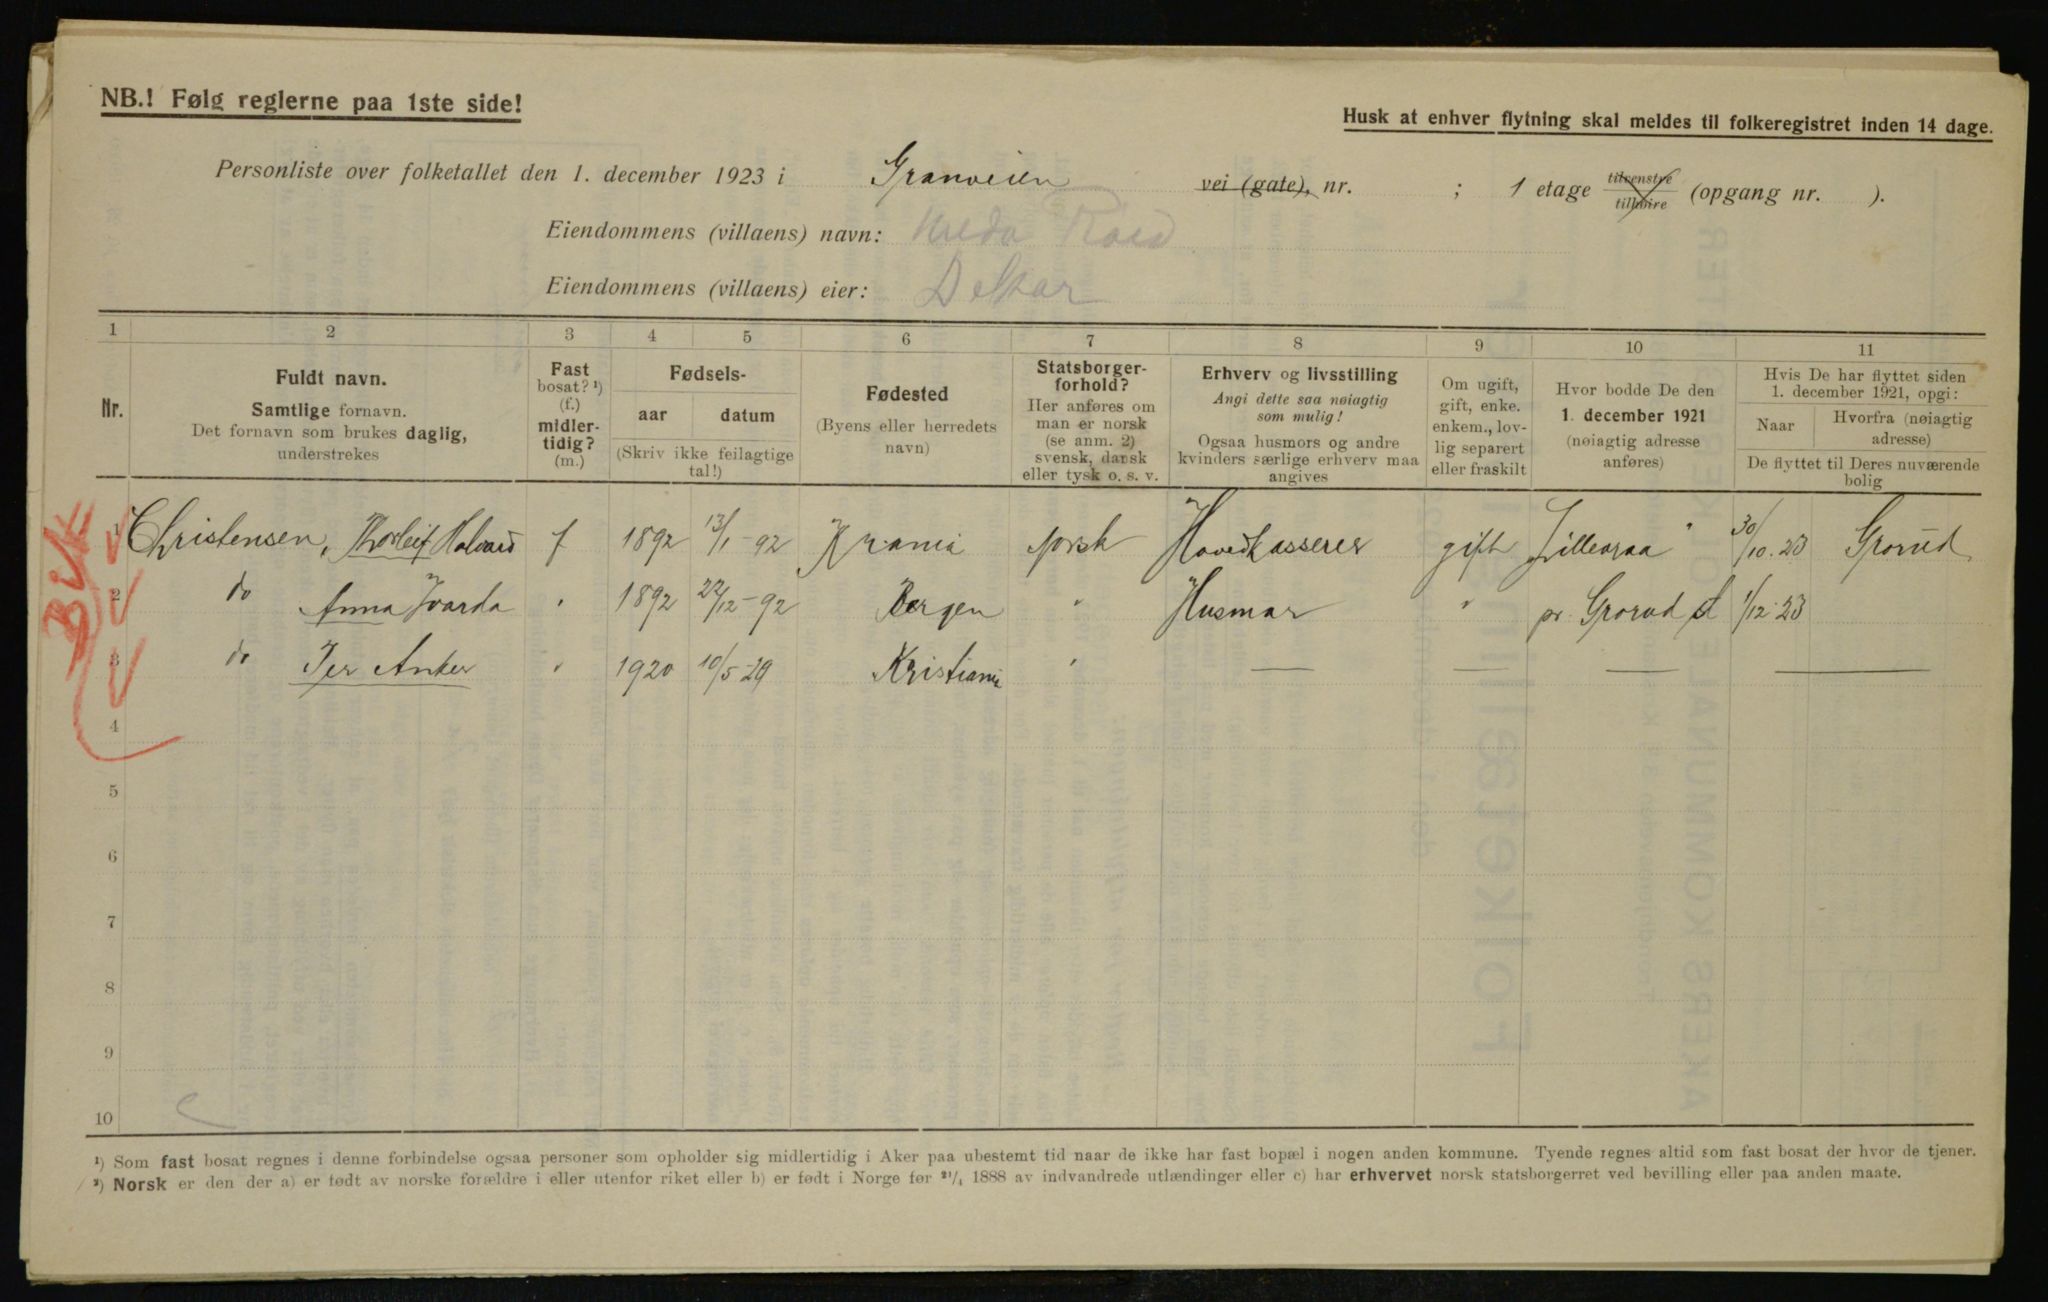 NB.! Følg reglerne paa 1ste side!
Husk at enhver flytning skal meldes til folkeregistret inden 14 dage.
Personliste over folketallet den 1. december 1923 i Granveien vei (gate), nr. ; 1 etage tilvenstre tilhøire (opgang nr. ).
Eiendommens (villaens) navn:
Eiendommens (villaens) eier:
1 2 3 4 5 6 7 8 9 10 11
Nr.
Fuldt navn.
Samtlige fornavn.
Det fornavn som brukes daglig,
understrekes
Fast
bosat? ¹)
(f.)
midler-
tidig?
(m.)
Fødsels-
aar datum
(Skriv ikke feilagtige
tal!)
Fødested
(Byens eller herredets
navn)
Statsborger-
forhold?
Her anføres om
man er norsk
(se anm. 2)
svensk, dansk
eller tysk o. s. v.
Erhverv og livsstilling
Angi dette saa nøiagtig
som mulig!
Ogsaa husmors og andre
kvinders særlige erhverv maa
angives
Om ugift,
gift, enke.
enkem., lov-
lig separert
eller fraskilt
Hvor bodde De den
1. december 1921
(nøiagtig adresse
anføres)
Hvis De har flyttet siden
1. december 1921, opgi:
Naar
Hvorfra (nøiagtig
adresse)
De flyttet til Deres nuværende
bolig
1 Christensen, Thorleif Halvard f 1892 13/1-92 Krania norsk Hovedkasserer gift Lilleoraa " 30/10.23 Grorud
2 do Anna Ivarda " 1892 22/12-92 Bergen " Husmor " pr. Grorud St 1/12 23
3 do Per Anker " 1920 10/5-29 Kristiania " — — — —
4
5
6
7
8
9
10
¹) Som fast bosat regnes i denne forbindelse ogsaa personer som opholder sig midlertidig i Aker paa ubestemt tid naar de ikke har fast bopæl i nogen anden kommune. Tyende regnes altid som fast bosat der hvor de tjener.
²) Norsk er den der a) er født av norske forældre i eller utenfor riket eller b) er født i Norge før ²¹/₄ 1888 av indvandrede utlændinger eller c) har erhvervet norsk statsborgerret ved bevilling eller paa anden maate.